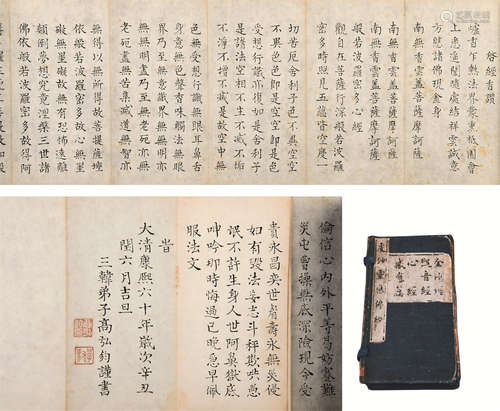 啓經香讚
爐香乍爇法界蒙熏祇園會
上悉遙聞隨處結祥雲誠意
方慇諸佛現金身
南無香雲蓋菩薩摩訶薩
南無香雲蓋菩薩摩訶薩
般若波羅蜜多心經
觀自在菩薩行深般若波羅
蜜多時照見五蘊皆空度一
切苦厄舍利子色不異空空
不異色色即是空空即是色
受想行識亦復如是舍利子
是諸法空相不生不滅不垢
不淨不增不減是故空中無
色無受想行識無眼耳鼻舌
身意無色聲香味觸法無眼
界乃至無意識界無無明亦
無無明盡乃至無老死亦無
老死盡無苦集滅道無智亦
無得以無所得故菩提薩埵
依般若波羅蜜多故心無罣
礙無罣礙故無有恐怖遠離
顛倒夢想究竟涅槃三世諸
佛依般若波羅蜜多故得阿
信心內外平善易妨寡難
無底深險現今受
貴永昌奕世壽永無災侵
如有毀法妄志斗秤欺哄愚
氓不許生身人世阿鼻獄底
呻吟那時悔過已晚急早佩
服法文
旹
大清康熙六十年歲次辛丑
閏六月吉旦
三韓弟子高弘鈞謹書
金剛經
觀音經
心經